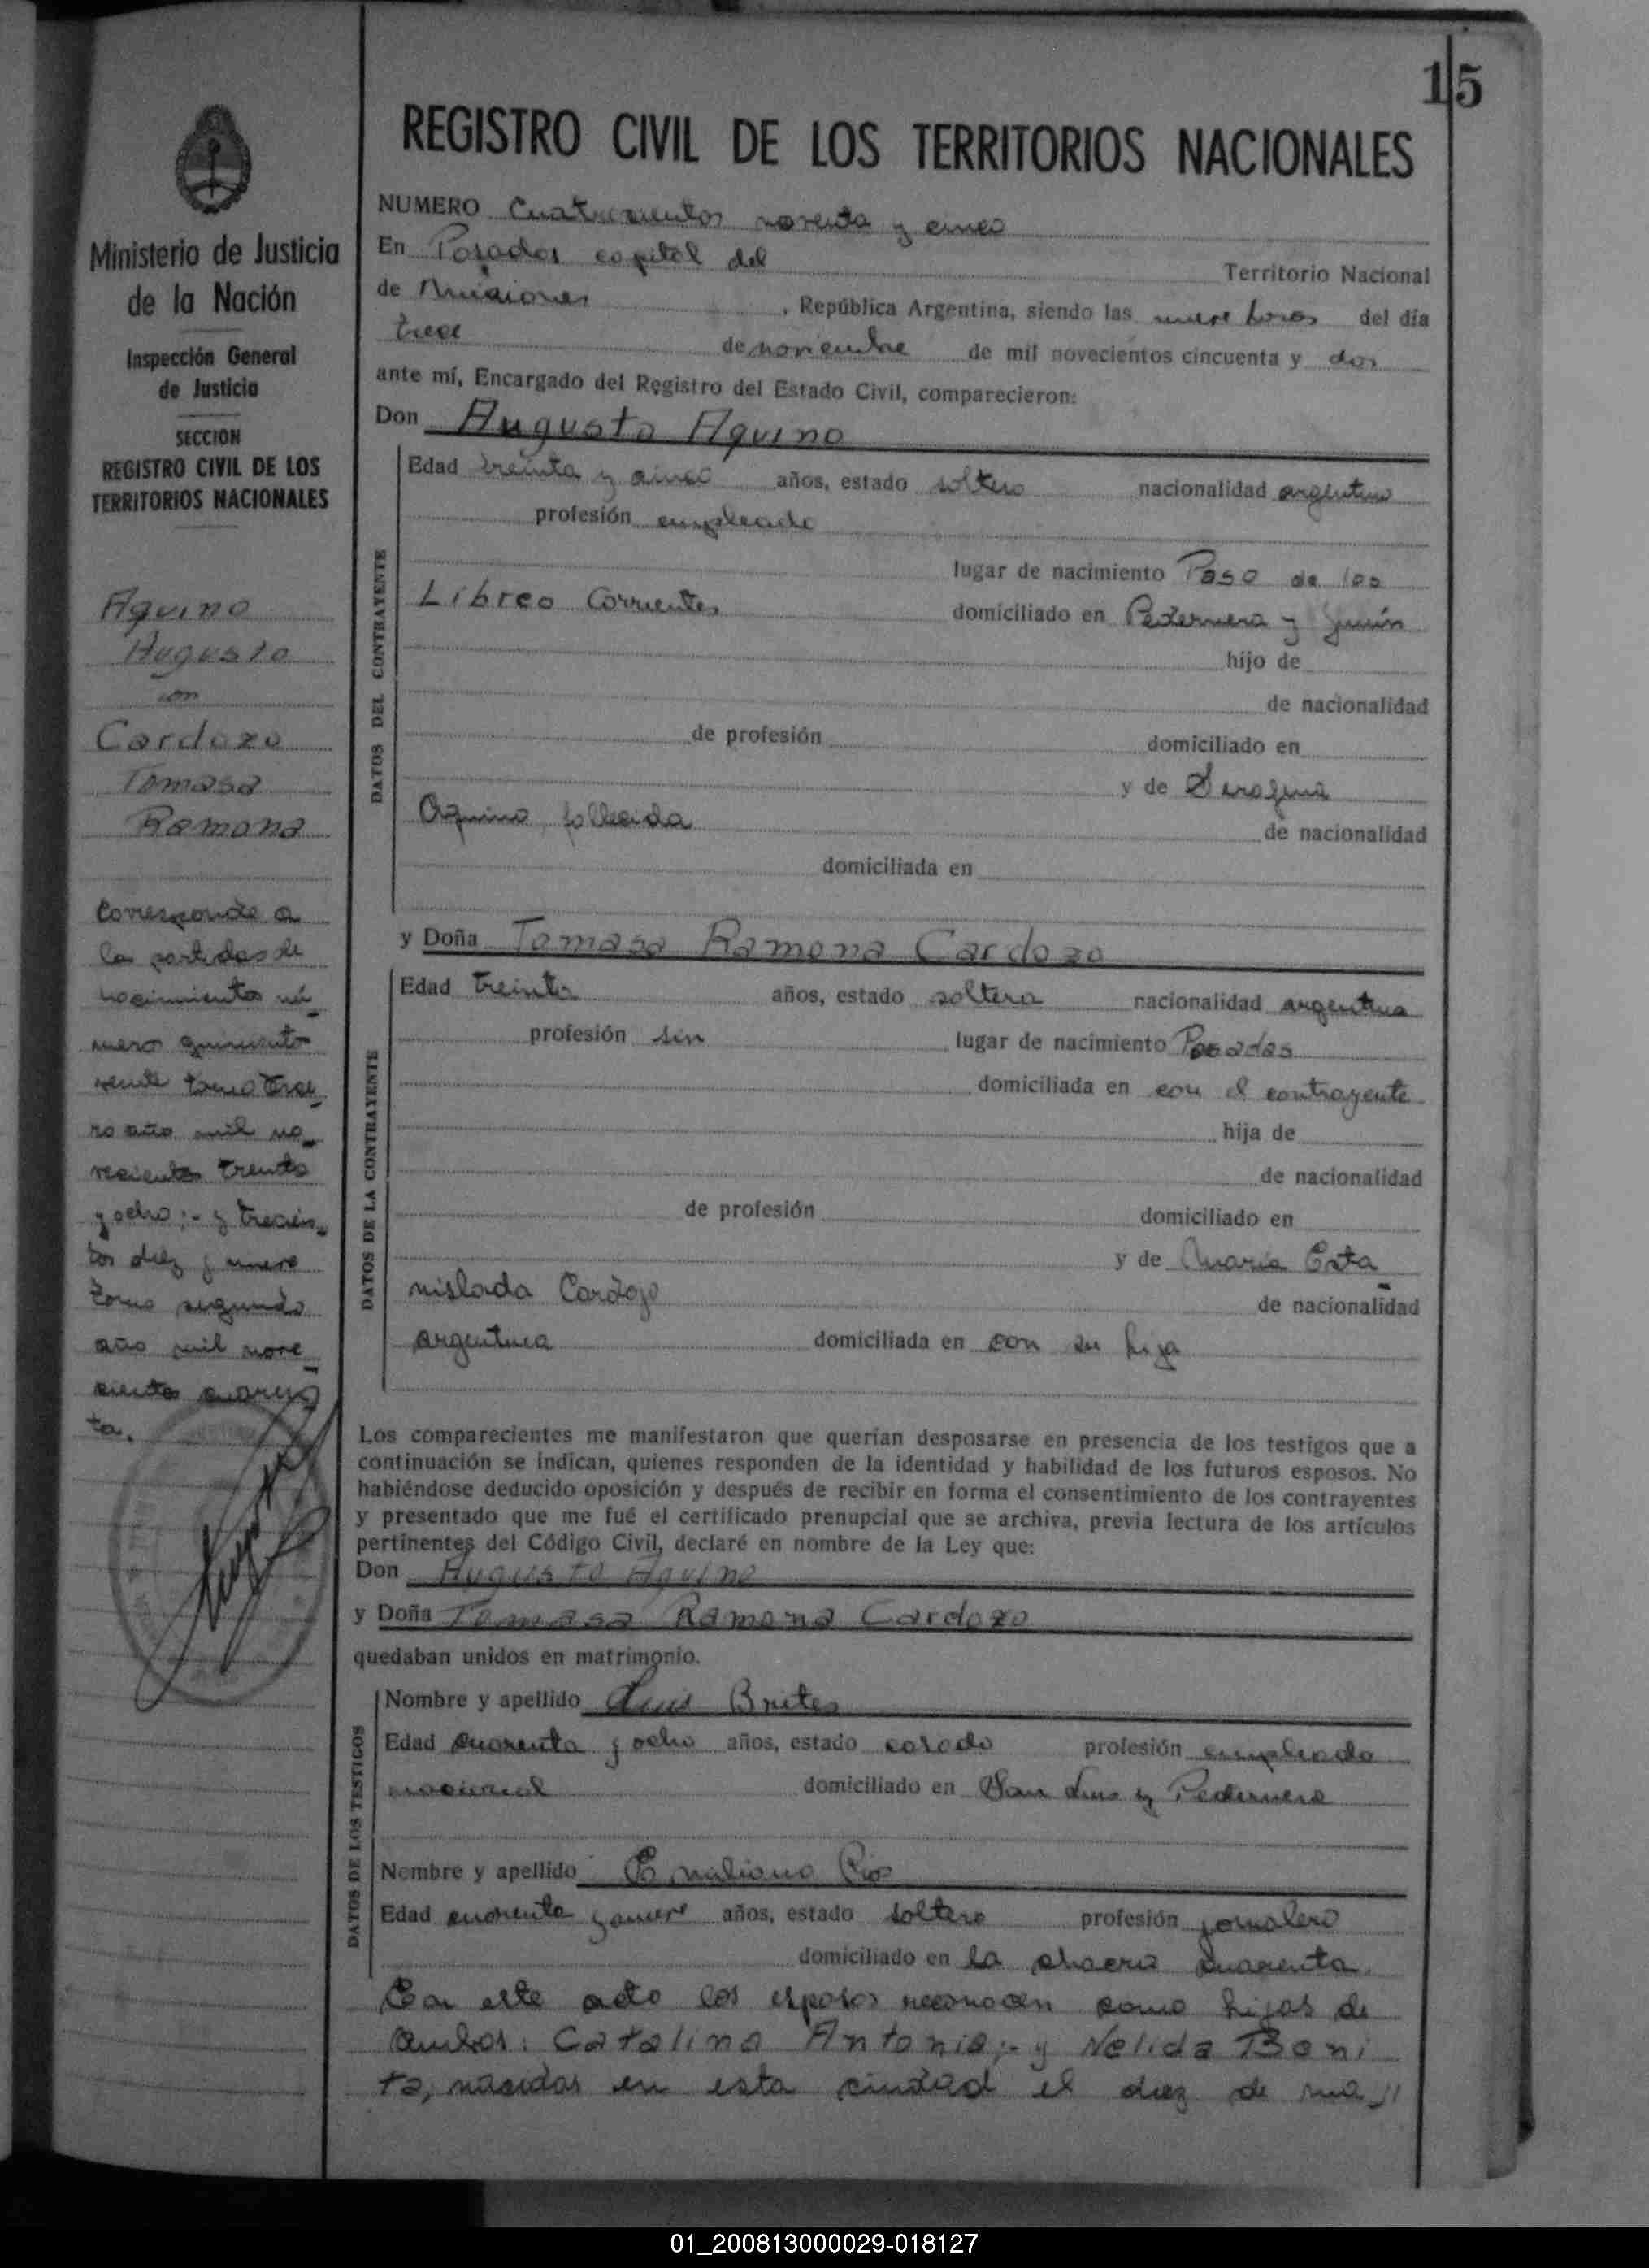 15
REGISTRO CIVIL DE LOS TERRITORIOS NACIONALES
Ministerio de Justicia
de la Nación
Inspección General
de Justicia
SECCION
REGISTRO CIVIL DE LOS
TERRITORIOS NACIONALES
Aquino
Augusto
con
Cardozo
Tomasa
Ramona
Corresponde a
la partidas de
nacimientos nú-
mero quiniento
veinte tomo terce-
ro año mil no-
vecientos treinta
y ocho;- y trecien-
tos diez y nueve
tomo segundo
año mil nove-
cientos cuaren-
ta.
NUMERO Cuatrocientos noventa y cinco
En Posadas capital del Territorio Nacional
de Misiones , República Argentina, siendo las nueve horas del día
trece de noviembre de mil novecientos cincuenta y dos
ante mí, Encargado del Registro del Estado Civil, comparecieron:
Don Augusto Aquino
DATOS DEL CONTRAYENTE
Edad treinta y cinco años, estado soltero nacionalidad argentino
profesión empleado
lugar de nacimiento Paso de los
Libres Corrientes domiciliado en Pedernera y Junín
hijo de
de nacionalidad
de profesión domiciliado en
y de Serafina
Aquino, fallecida de nacionalidad
domiciliada en
y Doña Tomasa Ramona Cardozo
DATOS DE LA CONTRAYENTE
Edad treinta años, estado soltera nacionalidad argentina
profesión sin lugar de nacimiento Posadas
domiciliada en con el contrayente
hija de
de nacionalidad
de profesión domiciliado en
y de María Esta-
nislada Cardozo de nacionalidad
argentina domiciliada en con su hija
Los comparecientes me manifestaron que querían desposarse en presencia de los testigos que a
continuación se indican, quienes responden de la identidad y habilidad de los futuros esposos. No
habiéndose deducido oposición y después de recibir en forma el consentimiento de los contrayentes
y presentado que me fué el certificado prenupcial que se archiva, previa lectura de los artículos
pertinentes del Código Civil, declaré en nombre de la Ley que:
Don Augusto Aquino
y Doña Tomasa Ramona Cardozo
quedaban unidos en matrimonio.
DATOS DE LOS TESTIGOS
Nombre y apellido Luis Brites
Edad cuarenta y ocho años, estado casado profesión empleado
nacional domiciliado en San Luis y Pedernera
Nombre y apellido Emiliano Rios
Edad cuarenta y nueve años, estado soltero profesión jornalero
domiciliado en la chacra cuarenta.
En este acto los esposos reconocen como hijas de
ambos: Catalina Antonia;- y Nelida Beni
ta, nacidas en esta ciudad el diez de ma//
01_200813000029-018127